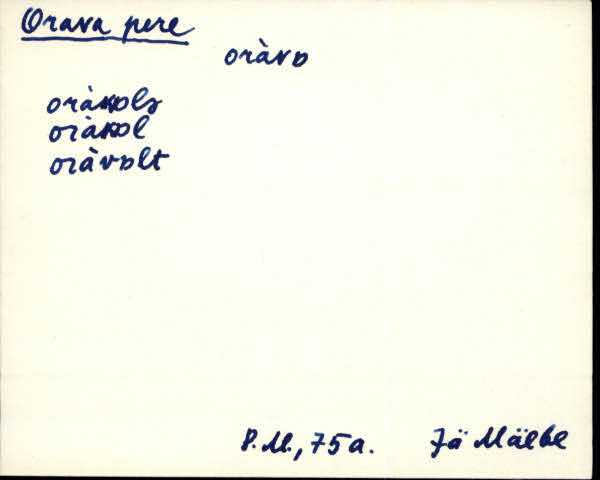 Orava pere
oràvɒ
oràvɒlɜ
oràvɒl
oràvɒlt
P.M., 75 a. Jä Mäebe